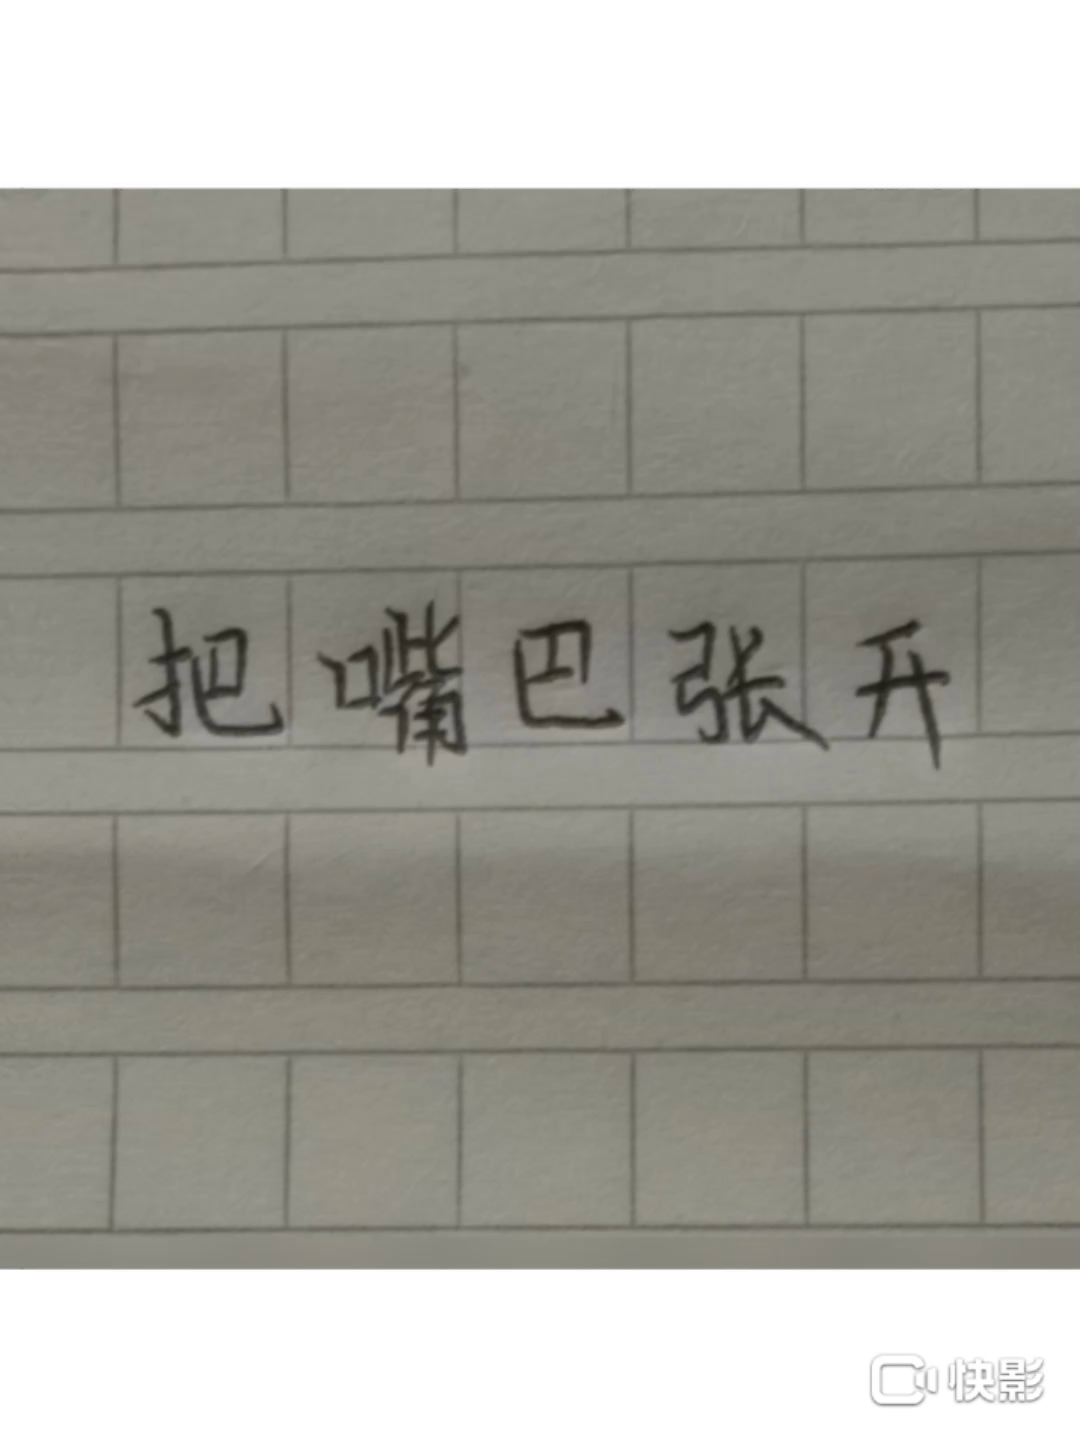 把嘴巴张开
快影